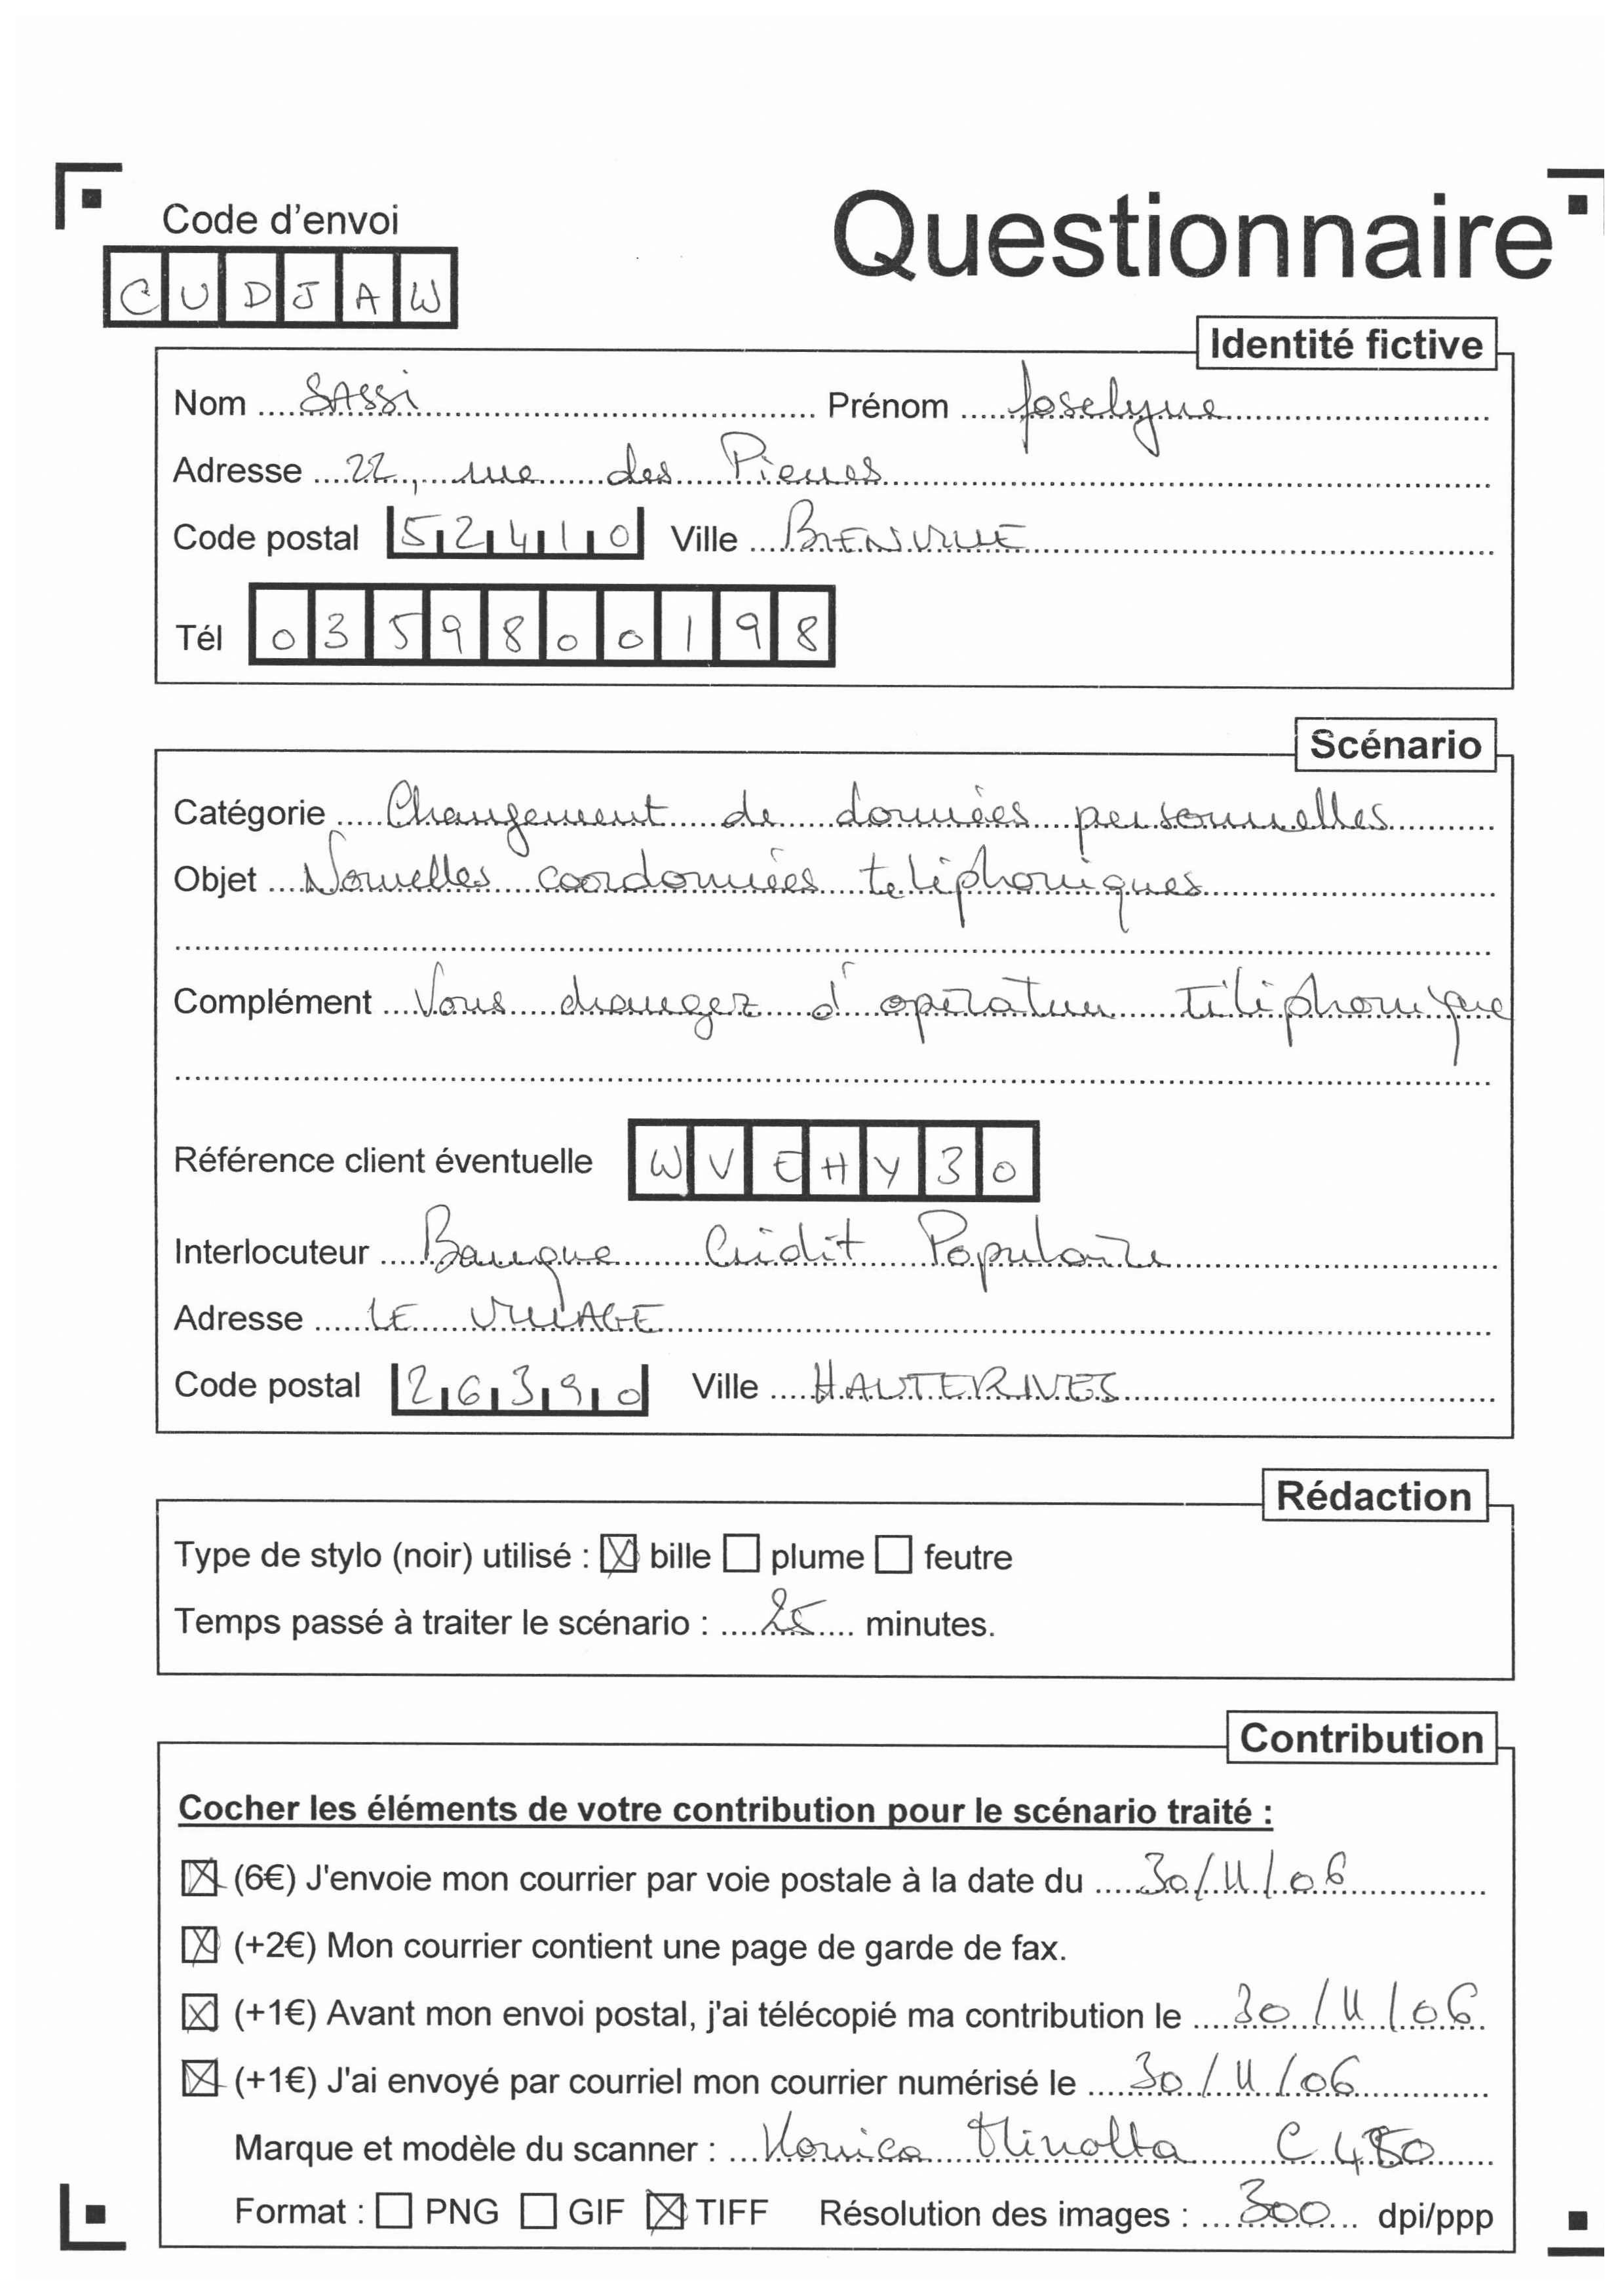 Questionnaire
Code d'envoi
CUDJAW
Identité fictive
Nom SASSi Prénom Joselyne
Adresse 22, rue des Pierres
Code postal 52410 Ville BIENVILLE
Tél 0359800198
Scénario
Catégorie Changement de données personnelles
Objet Nouvelles coordonnées téléphoniques
Complément Vous changez d'opérateur téléphonique
Référence client éventuelle WVEHY30
Interlocuteur Banque Crédit Populaire
Adresse LE VILLAGE
Code postal 26390 Ville HAUTERIVES
Rédaction
Type de stylo (noir) utilisé : ☒ bille ☐ plume ☐ feutre
Temps passé à traiter le scénario : 25 minutes.
Contribution
Cocher les éléments de votre contribution pour le scénario traité :
☒ (6€) J'envoie mon courrier par voie postale à la date du 30/11/06
☒ (+2€) Mon courrier contient une page de garde de fax.
☒ (+1€) Avant mon envoi postal, j'ai télécopié ma contribution le 30/11/06
☒ (+1€) J'ai envoyé par courriel mon courrier numérisé le 30/11/06
Marque et modèle du scanner : Konica Minolta C450
Format : ☐ PNG ☐ GIF ☒ TIFF Résolution des images : 300 dpi/ppp